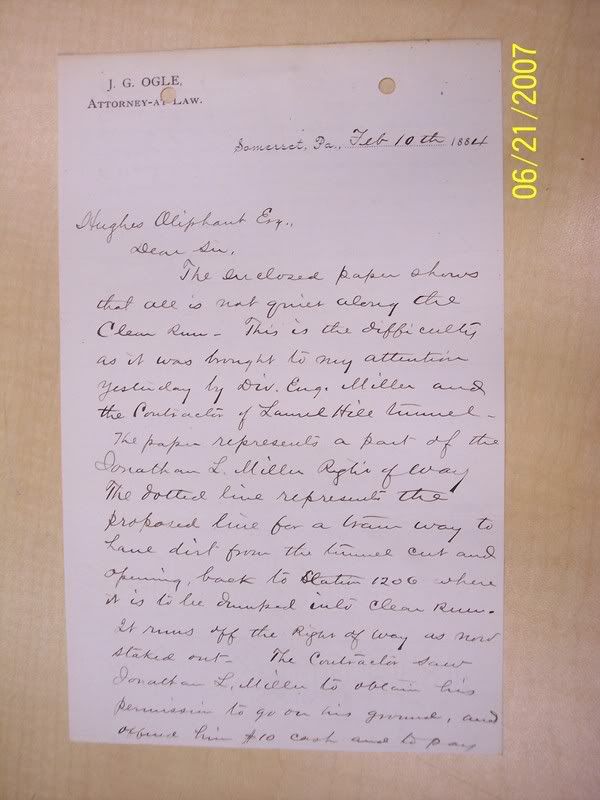 J. G. OGLE,
ATTORNEY-AT LAW.
Somerset, Pa., Feb 10th 1884
Hughes Oliphant Esq.,
Dear Sir,
The enclosed paper shows
that all is not quiet along the
Clear Run - This is the difficulty
as it was brought to my attention
yesterday by Div. Eng. Miller and
the Contractor of Laurel Hill tunnel -
The paper represents a part of the
Jonathan L. Miller Right of Way
The dotted line represents the
proposed line for a tram way to
haul dirt from the tunnel cut and
opening, back to Station 1206 where
it is to be dumped into Clear Run.
It runs off the Right of Way as now
staked out - The Contractor saw
Jonathan L. Miller to obtain his
permission to go on his ground, and
offered him $10 cash and to pay
06/21/2007